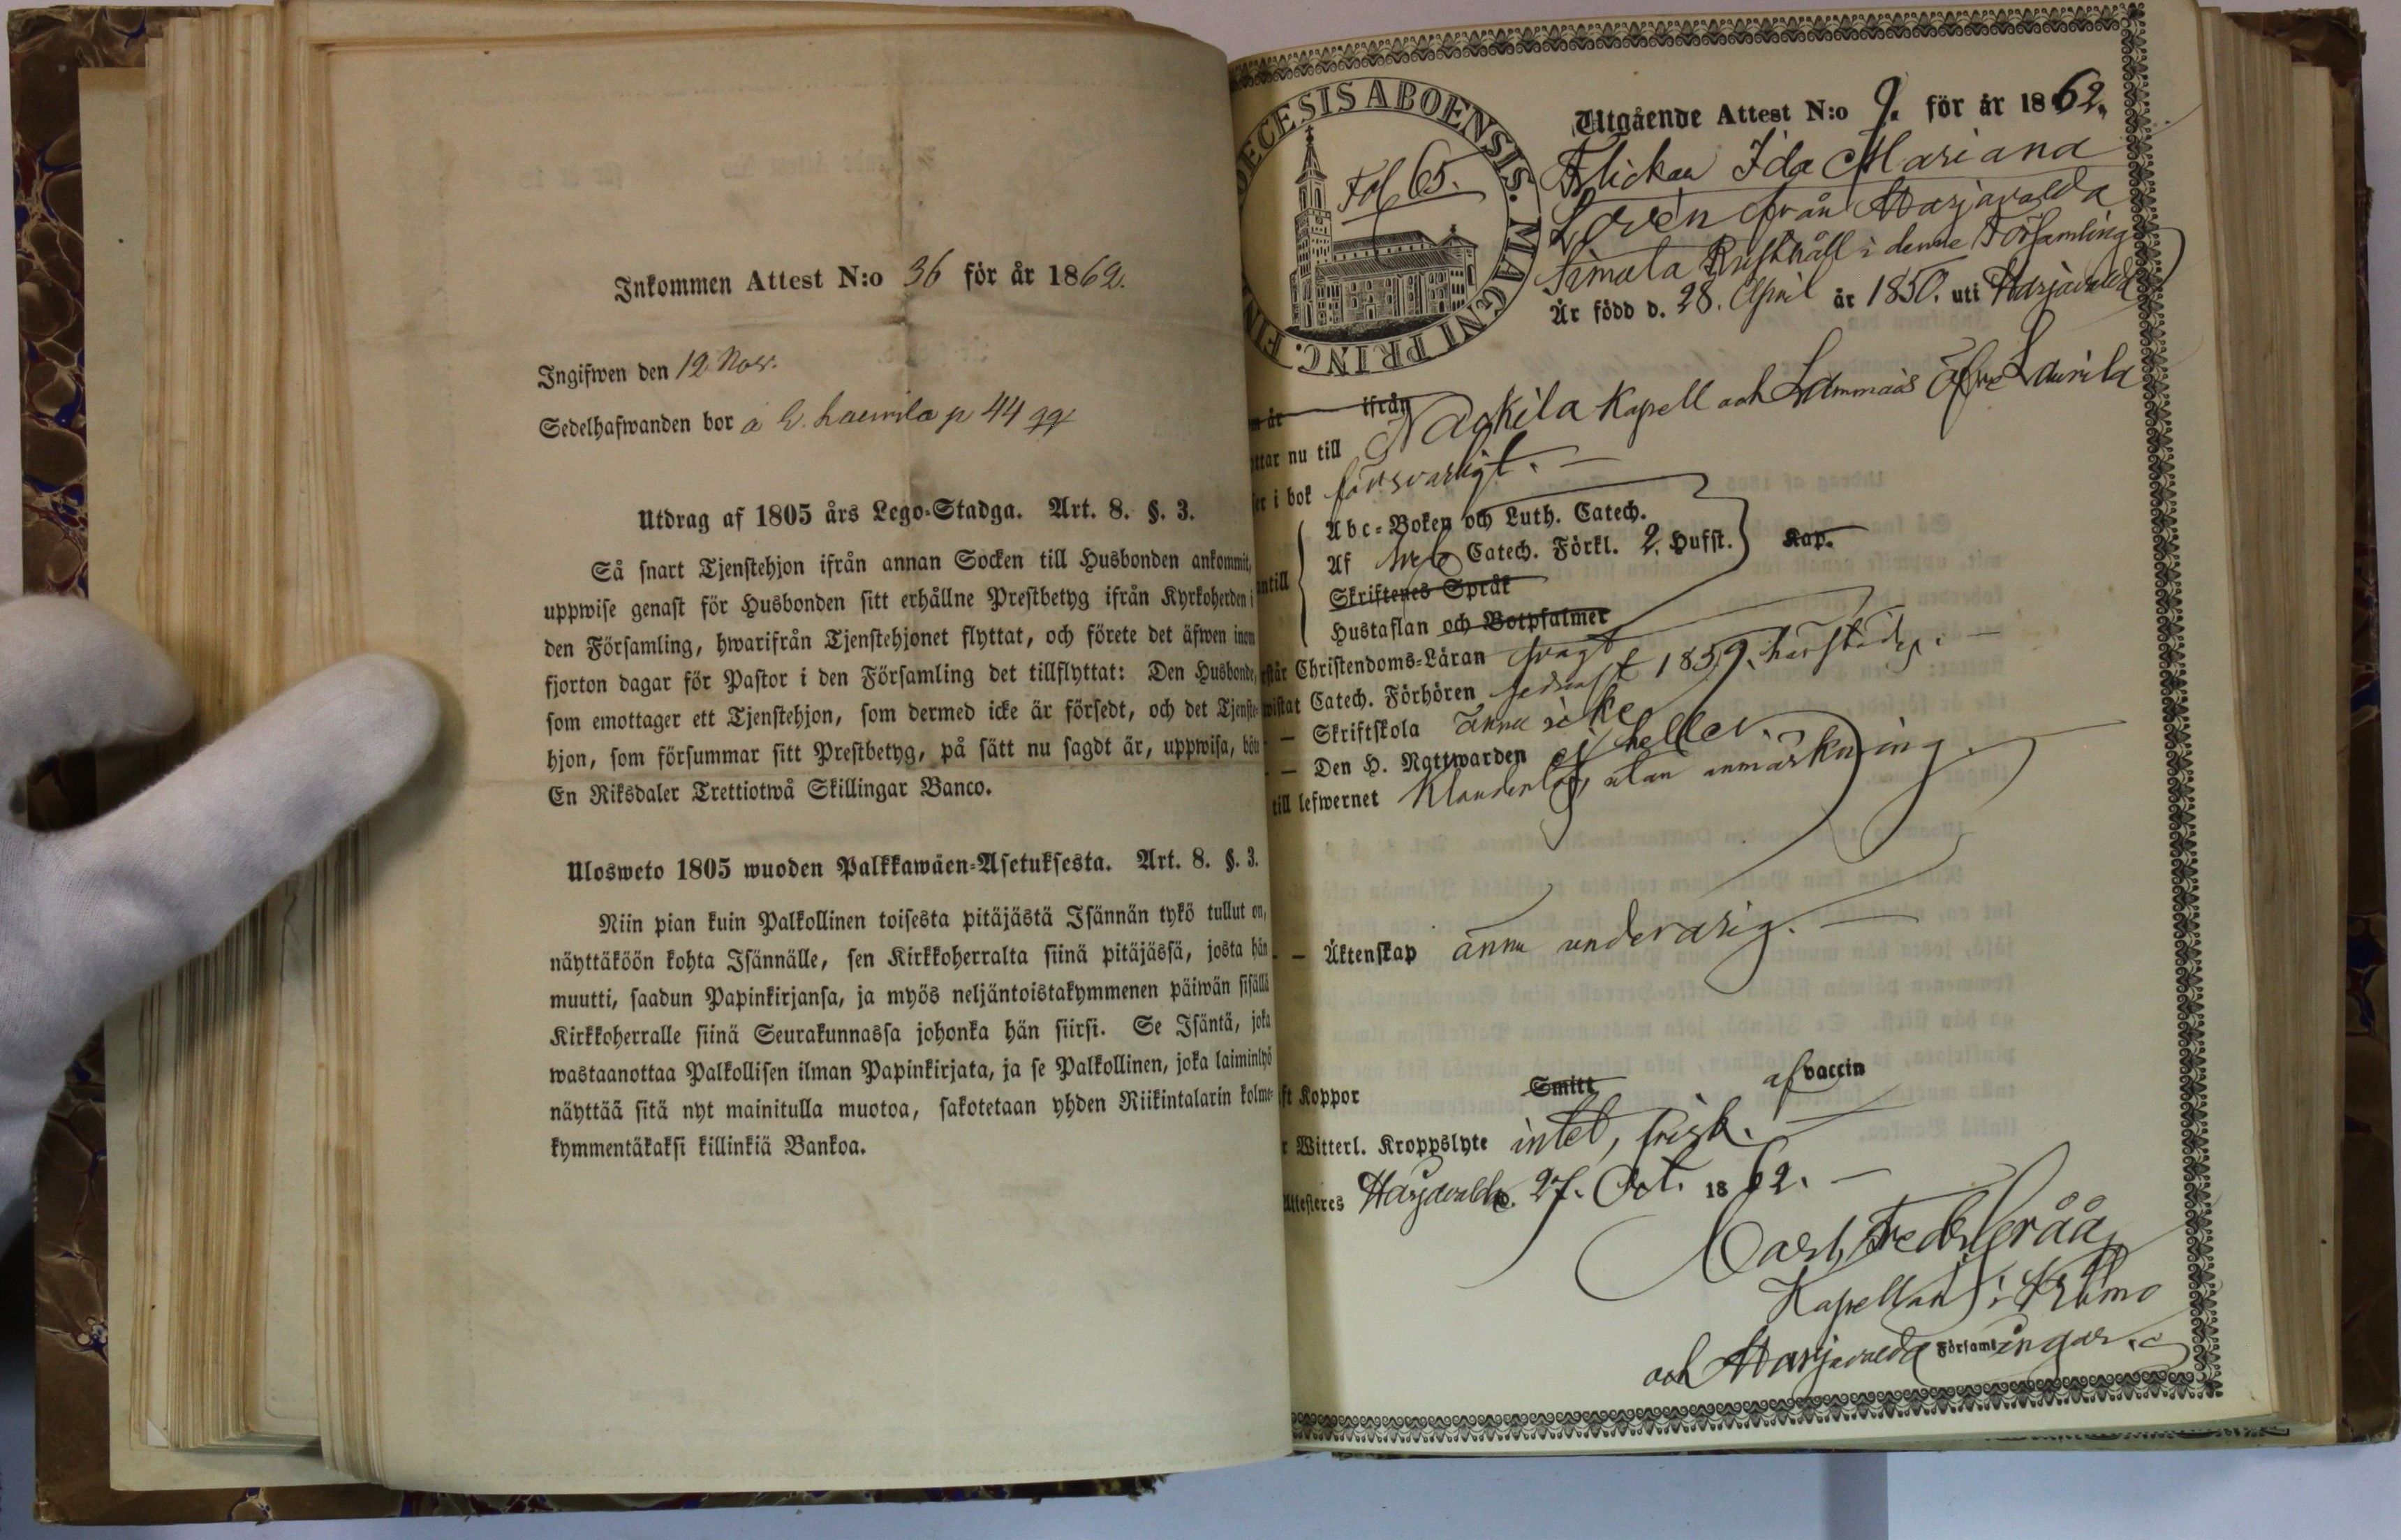 Inkommen Attest N:o 36 för år 1862.
Ingifwen den 12 Nov.
Sedelhafwanden bor å Ö. Laurila p 44
Utdrag af 1805 års Lego-Stadga. Art. 8. §. 3.
Så snart Tjenstehjon ifrån annan Socken till Husbonden ankommit,
uppwise genast för Husbonden sitt erhållne Prestbetyg ifrån Kyrkoherden i
den Församling, hwarifrån Tjenstehjonet flyttat, och förete det äfwen inom
fjorton dagar för Pastor i den Församling det tillflyttat: Den Husbonde,
som emottager ett Tjenstehjon, som dermed icke är försedt, och det Tjenste-
hjon, som försummar sitt Prestbetyg, på sätt nu sagdt är, uppwisa, böte
En Riksdaler Trettiotwå Skillingar Banco.
Ulosweto 1805 wuoden Palkkawäen-Asetuksesta. Art. 8. §. 3.
Niin pian kuin Palkollinen toisesta pitäjästä Isännän tykö tullut on,
näyttäköön kohta Isännälle, sen Kirkkoherralta siinä pitäjässä, josta hän
muutti, saadun Papinkirjansa, ja myös neljäntoistakymmenen päiwän sisällä
Kirkkoherralle siinä Seurakunnassa johonka hän siirsi. Se Isäntä, joka
wastaanottaa Palkollisen ilman Papinkirjata, ja se Palkollinen, joka laiminlyö
näyttää sitä nyt mainitulla muotoa, sakotetaan yhden Riikintalarin kolme-
kymmentäkaksi killinkiä Bankoa.
OECESIS ABOENSIS. MAGNI PRINC. FIN
Fol 65.
Utgående Attest N:o 9. för år 1862.
Flickan Ida Mariana
Lovén från Harjavalda
Simola Rusthåll i denne Församling
Är född d. 28. April år 1850. uti Harjavalda
m är ifrån
ttar nu till Nackila Kapell och Lammais Öfre Laurila
er i bok försvarligt.
Abc-Boken och Luth. Catech.
ntill Af Sveb Catech. Förkl. 2. Hufst. Kap.
Skriftenes Språk
Hustaflan och Botpsalmer
rstår Christendoms-Läran svagt
wistat Catech. Förhören sednast 1859. härstädes.
— Skriftskola ännu icke
— Den H. Nattwarden ej heller.
till lefwernet klanderlös, utan anmärkning.
— Äktenskap ännu underårig.
ft Koppor Smitt af vaccin
r Witterl. Kroppslyte intet, frisk.
Attesteres Harjavalda. 27. Oct. 1862.
Carl Fredr Gråå
Kapellan i Kumo
och Harjavalda Församlingar.